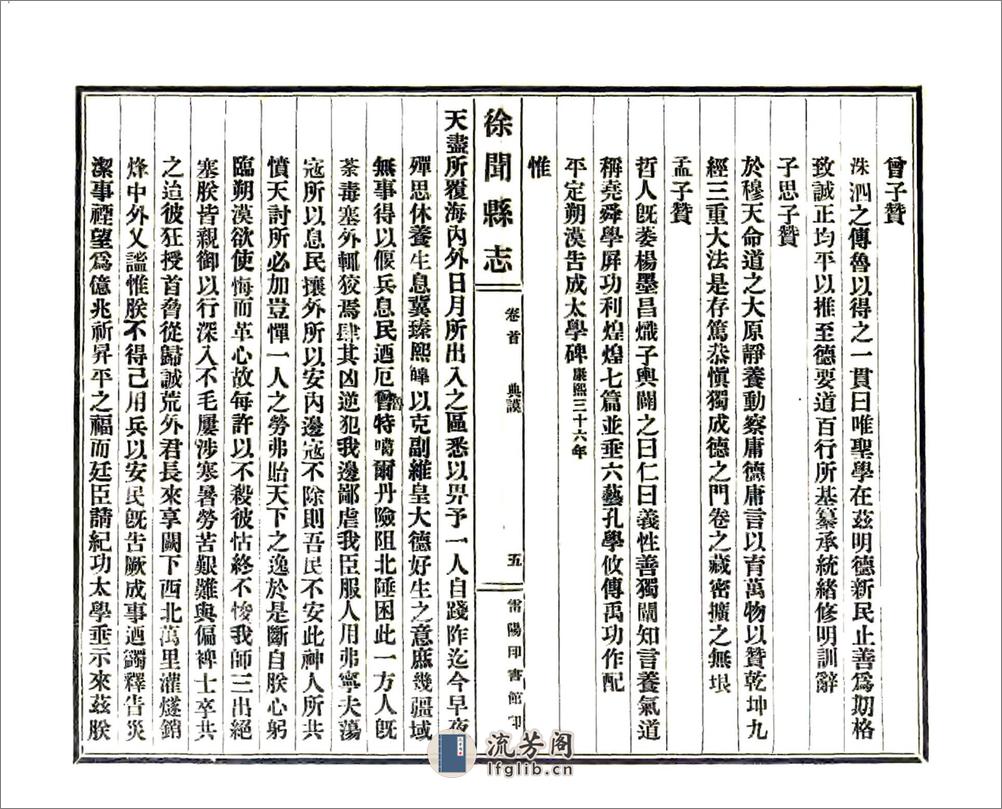 曾子贊
洙泗之傳魯以得之一貫曰唯聖學在茲明德新民止善爲期格
致誠正均平以推至德要道百行所基纂承統緒修明訓辭
子思子贊
於穆天命道之大原靜養動察庸德庸言以育萬物以贊乾坤九
經三重大法是存篤恭愼獨成德之門卷之藏密擴之無垠
孟子贊
哲人旣萎楊墨昌熾子輿闢之曰仁曰義性善獨闡知言養氣道
稱堯舜學屏功利煌煌七篇並垂六藝孔學攸傳禹功作配
平定朔漠告成太學碑康熙三十六年
惟
徐聞縣志
卷首
典謨
五
雷陽印書館印
天盡所覆海內外日月所出入之區悉以畀予一人自踐阼迄今早夜
殫思休養生息冀臻熙皞以克副維皇大德好生之意庶幾疆域
無事得以偃兵息民迺厄魯特噶爾丹險阻北陲困此一方人旣
荼毒塞外輒狡焉肆其凶逆犯我邊鄙虐我臣服人用弗寧夫蕩
寇所以息民攘外所以安內邊寇不除則吾民不安此神人所共
憤天討所必加豈憚一人之勞弗貽天下之逸於是斷自朕心躬
臨朔漠欲使悔而革心故每許以不殺彼怙終不悛我師三出絕
塞朕皆親御以行深入不毛屢涉寒暑勞苦艱難與偏裨士卒共
之迨彼狂授首脅從歸誠荒外君長來享闕下西北萬里灌燧銷
烽中外乂謐惟朕不得已用兵以安民旣告厥成事迺蠲釋告災
潔事禋望爲億兆祈昇平之福而廷臣請紀功太學垂示來茲朕
流芳阁
lfglib.cn